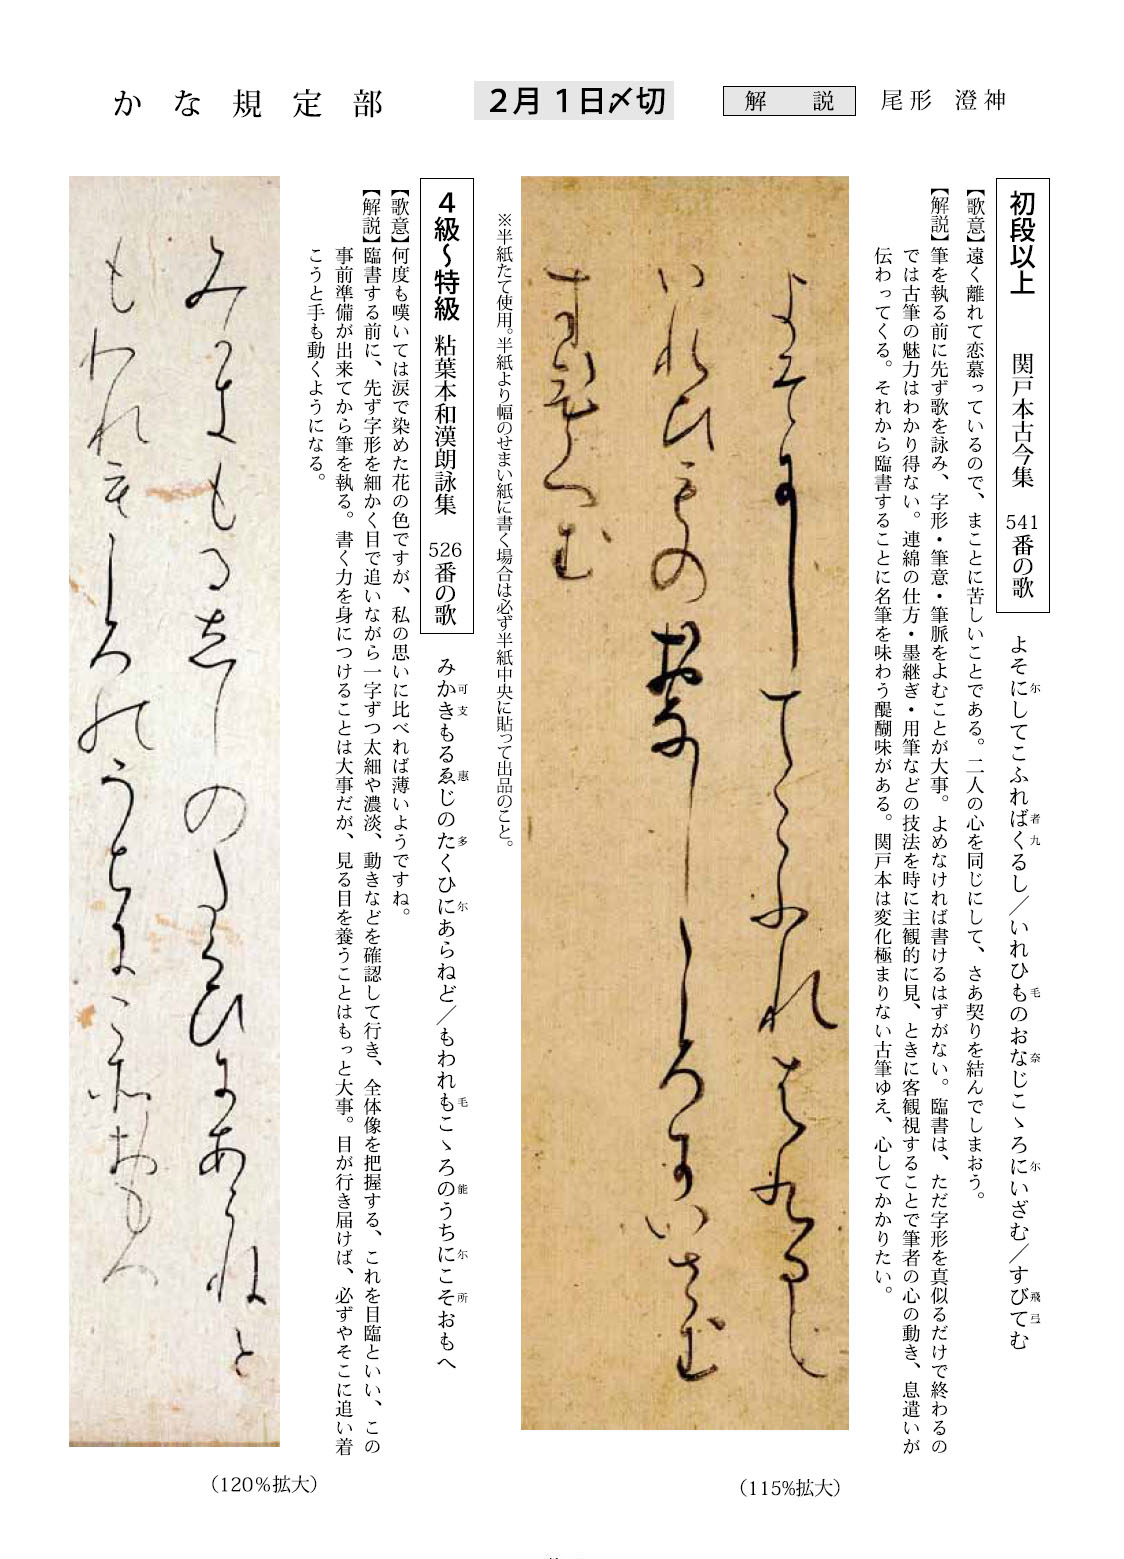 かな規定部
2月1日〆切
解説
尾形 澄神
初段以上 関戸本古今集 541番の歌
よそにしてこふればくるし／いれひものおなじこゝろにいざむ／すびてむ
尓 者 九 毛 奈 尓 飛 弖
【歌意】遠く離れて恋慕っているので、まことに苦しいことである。二人の心を同じにして、さあ契りを結んでしまおう。
【解説】筆を執る前に先ず歌を詠み、字形・筆意・筆脈をよむことが大事。よめなければ書けるはずがない。臨書は、ただ字形を真似るだけで終わるの
では古筆の魅力はわかり得ない。連綿の仕方・墨継ぎ・用筆などの技法を時に主観的に見、ときに客観視することで筆者の心の動き、息遣いが
伝わってくる。それから臨書することに名筆を味わう醍醐味がある。関戸本は変化極まりない古筆ゆえ、心してかかりたい。
よそ尓してこふれ者九るし
いれひ毛のお奈しこゝろ尓いさむ
すひ弖む
（115%拡大）
※半紙たて使用。半紙より幅のせまい紙に書く場合は必ず半紙中央に貼って出品のこと。
4級～特級 粘葉本和漢朗詠集 526番の歌
みかきもるゑじのたくひにあらねど／もわれもこゝろのうちにこそおもへ
可 支 惠 多 尓 毛 能 尓 所
【歌意】何度も嘆いては涙で染めた花の色ですが、私の思いに比べれば薄いようですね。
【解説】臨書する前に、先ず字形を細かく目で追いながら一字ずつ太細や濃淡、動きなどを確認して行き、全体像を把握する、これを目臨といい、この
事前準備が出来てから筆を執る。書く力を身につけることは大事だが、見る目を養うことはもっと大事。目が行き届けば、必ずやそこに追い着
こうと手も動くようになる。
み可支もる惠しの多くひ尓あらねと
もわれ毛こゝろ能うち尓こ所おもへ
（120%拡大）